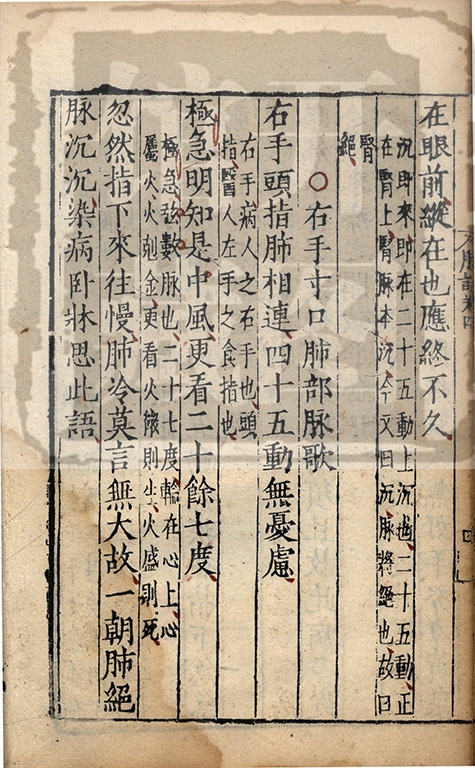 在眼前縱在也應終不久
沉即來即在二十五動上沉過二十五動正
在腎上腎脉本沉今又曰沉脉將絕也故曰
腎
絕
○右手寸口肺部脉歌
右手頭指肺相連四十五動無憂慮
右手病人之右手也頭
指醫人左手之食指也
極急明知是中風更看二十餘七度
極急弦數脉也二十七度輪在心上心
屬火火剋金更看火微則生火盛則死
忽然指下來往慢肺冷莫言無大故一朝肺絕
脉沉沉染病卧牀思此語